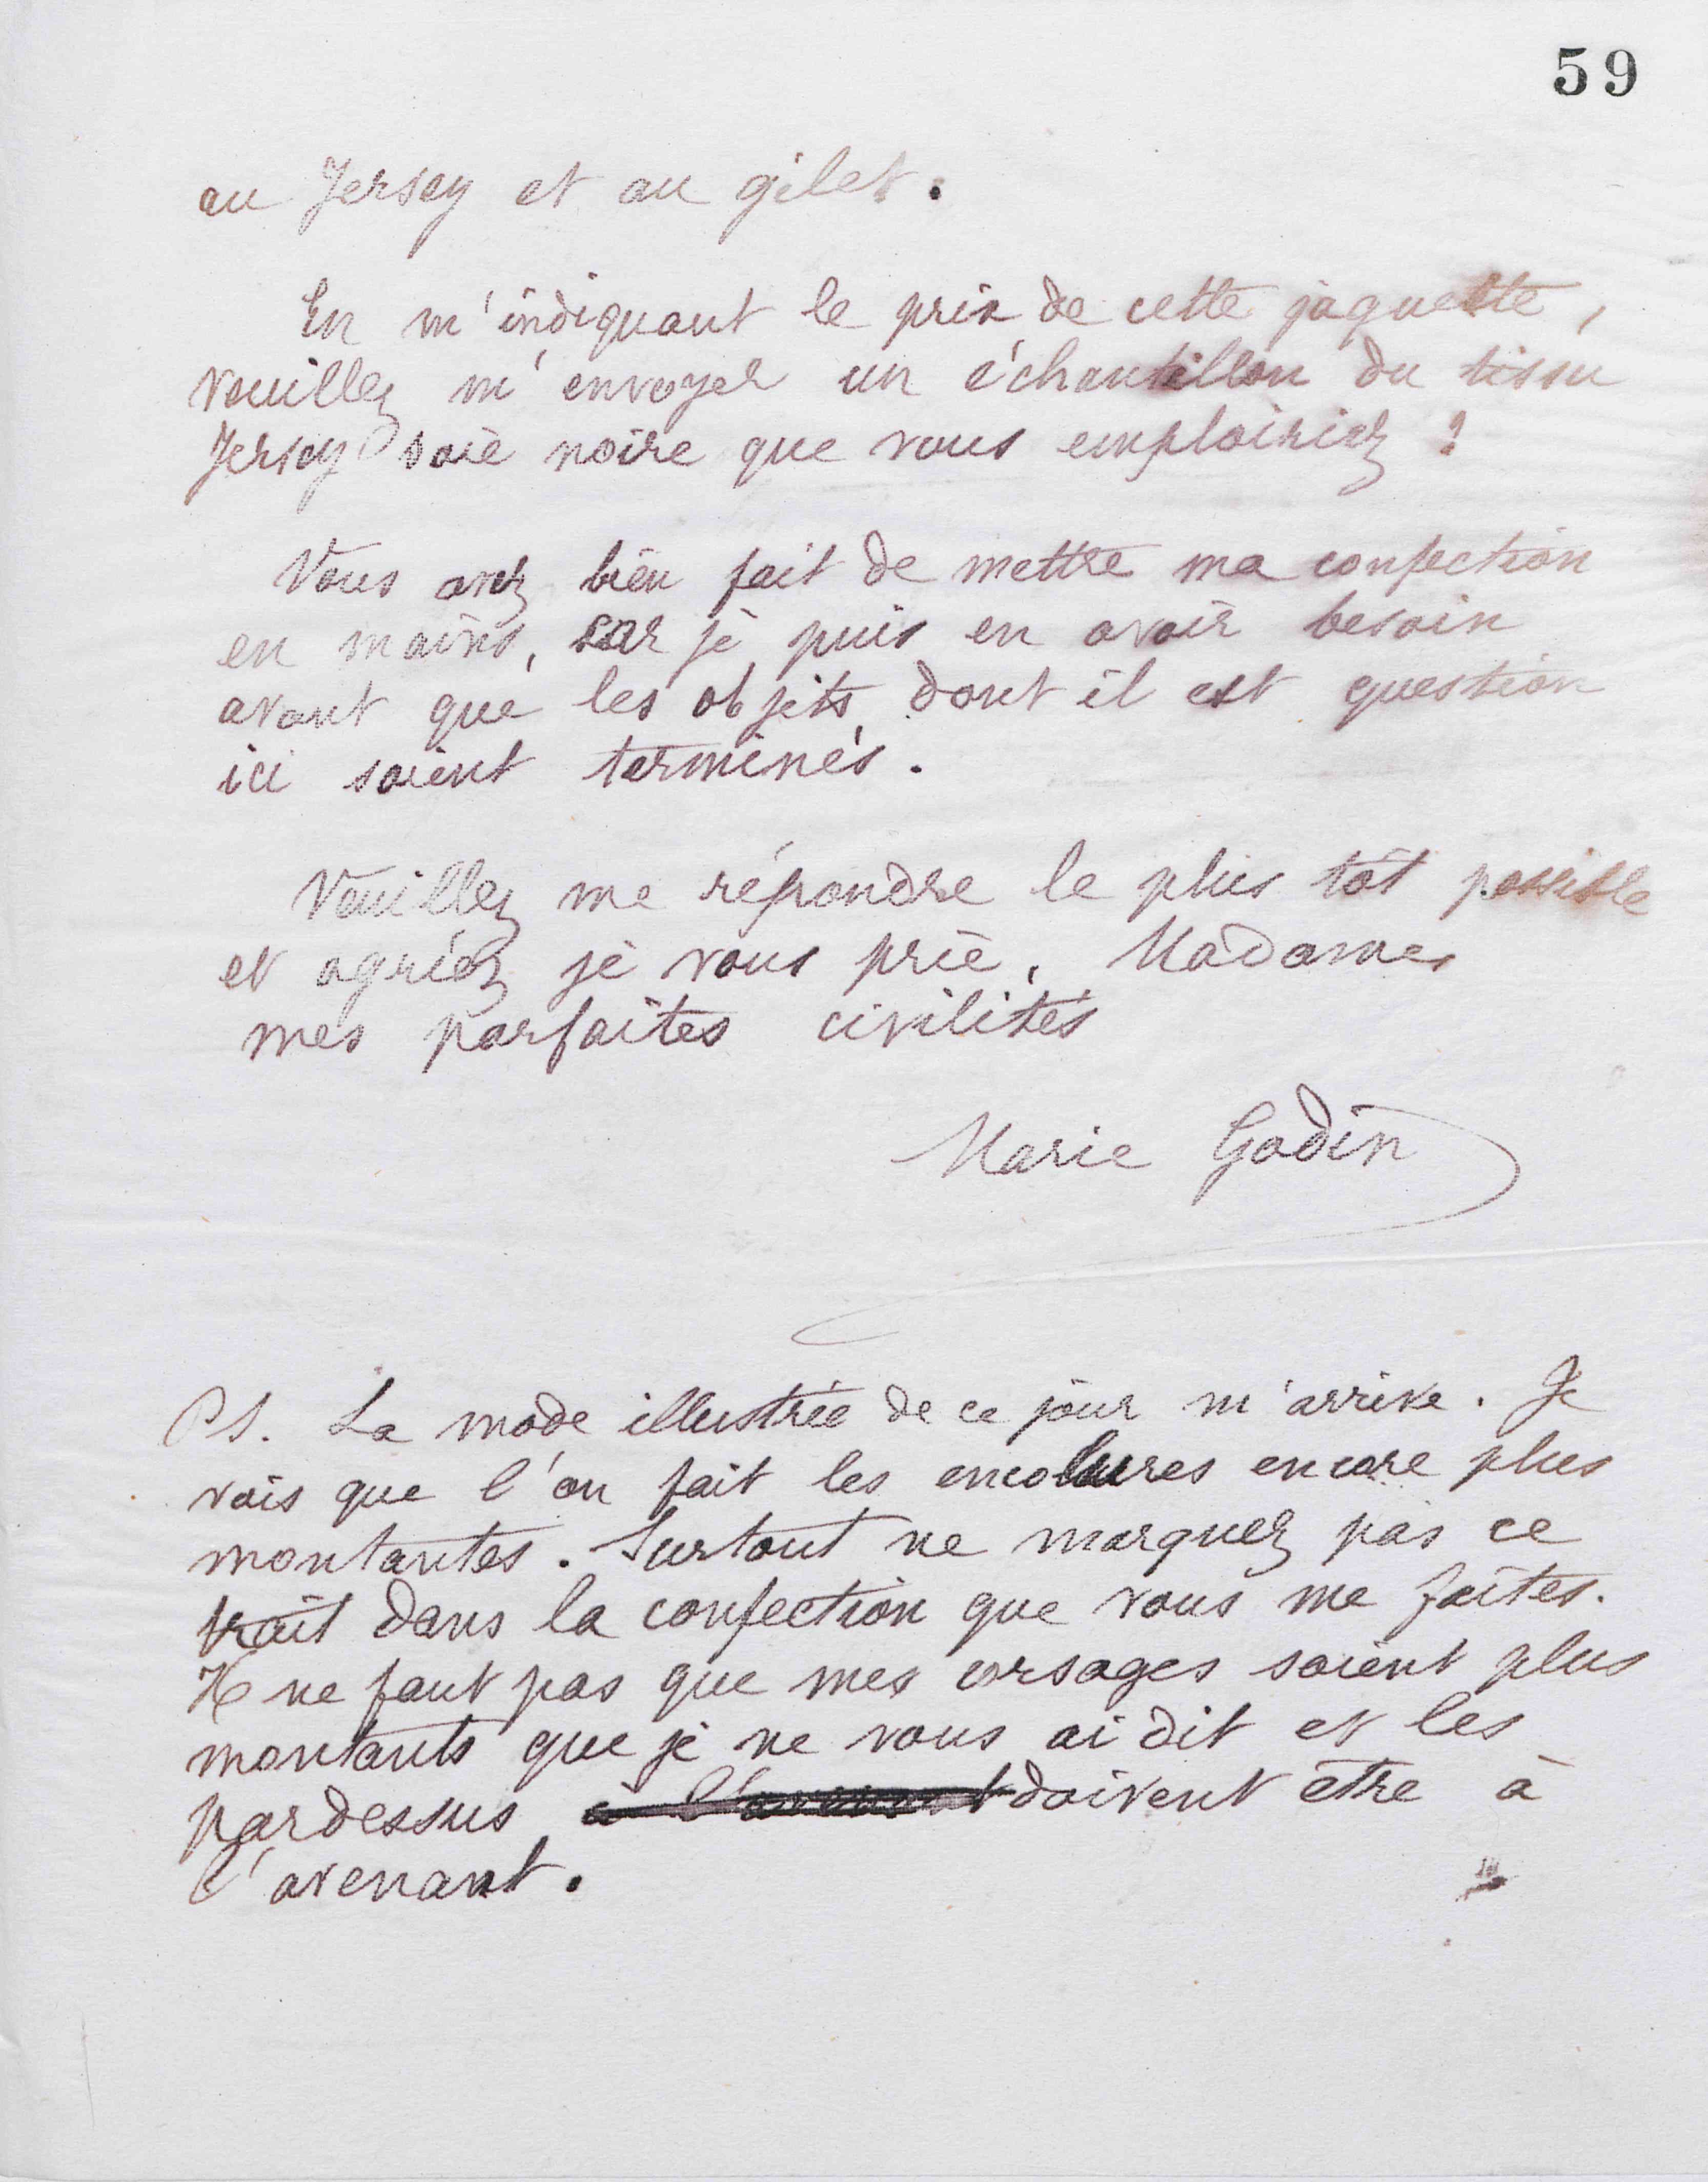 59
au Jersey et au gilet.
En m'indiquant le prix de cette jaquette,
veuillez m'envoyer un échantillon du tissu
Jersey soie noire que vous emploiriez ?
Vous avez bien fait de mettre ma confection
en mains, car je puis en avoir besoin
avant que les objets dont il est question
ici soient terminés.
Veuillez me répondre le plus tôt possible
et agréez je vous prie, Madame,
mes parfaites civilités
Marie Godin
PS. La mode illustrée de ce jour m'arrive. Je
vois que l'on fait les encolures encore plus
montantes. Surtout ne marquez pas ce
trait dans la confection que vous me faites.
Il ne faut pas que mes corsages soient plus
montants que je ne vous ai dit et les
pardessus doivent être à
l'avenant.